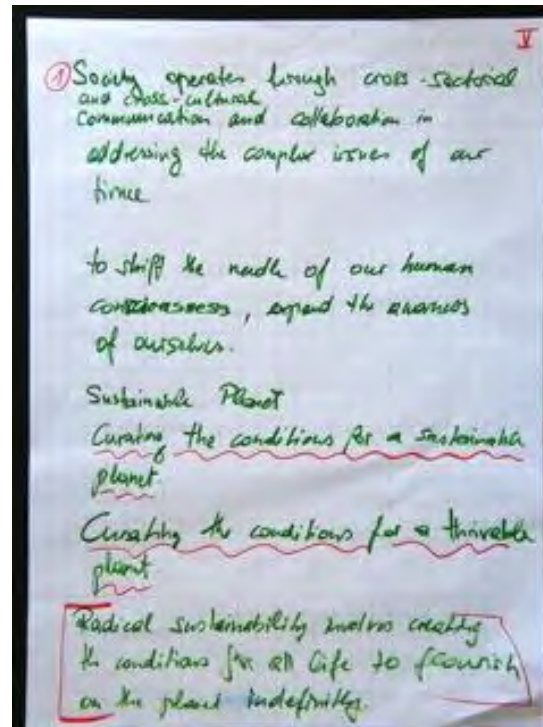 V
① Society operates through cross-sectorial
and cross-cultural
communication and collaboration in
addressing the complex issues of our
time
to shift the needle of our human
consciousness, expand the awareness
of ourselves.
Sustainable Planet
Curating the conditions for a sustainable
planet
Curating the conditions for a thrivable
planet
Radical sustainability involves creating
the conditions for all life to flourish
on the planet indefinitly.